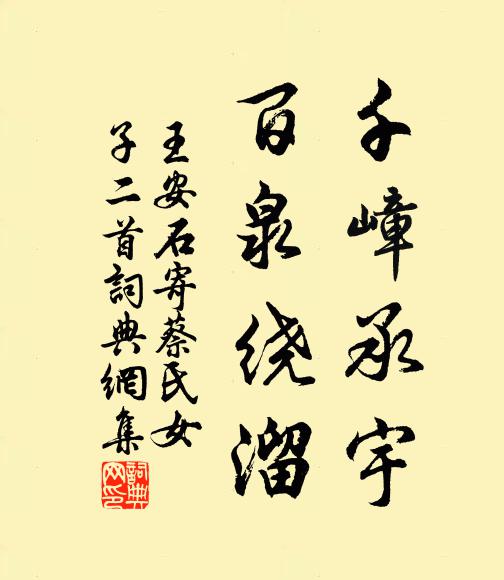 千嶂承宇
百泉绕溜
王安石寄蔡氏女
子二首詞典網集
詞典
网印